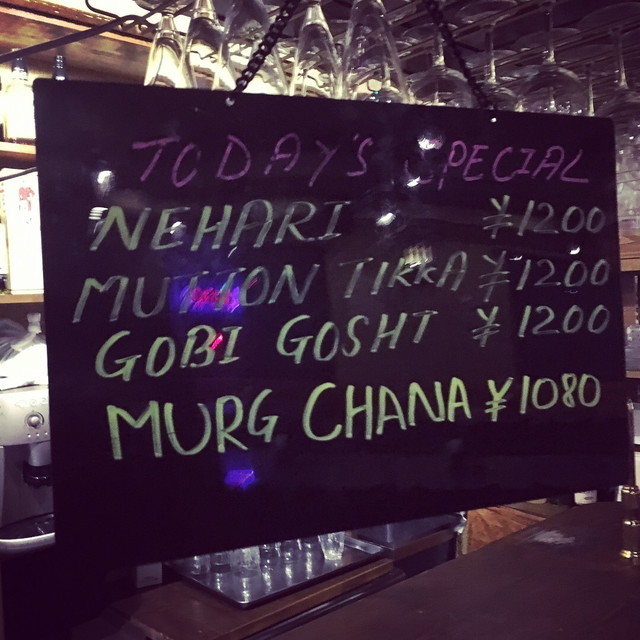 TODAY'S SPECIAL
NEHARI ¥1200
MUTTON TIKKA ¥1200
GOBI GOSHT ¥1200
MURG CHANA ¥1080